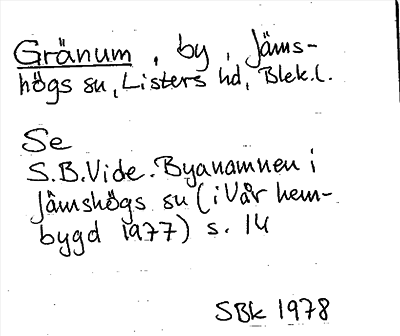 Gränum, by, Jäms-
högs sn, Listers hd, Blek.l.
Se
S.B.Vide. Byanamnen i
Jämshögs sn (i Vår hem-
bygd 1977) s. 14
SBk 1978